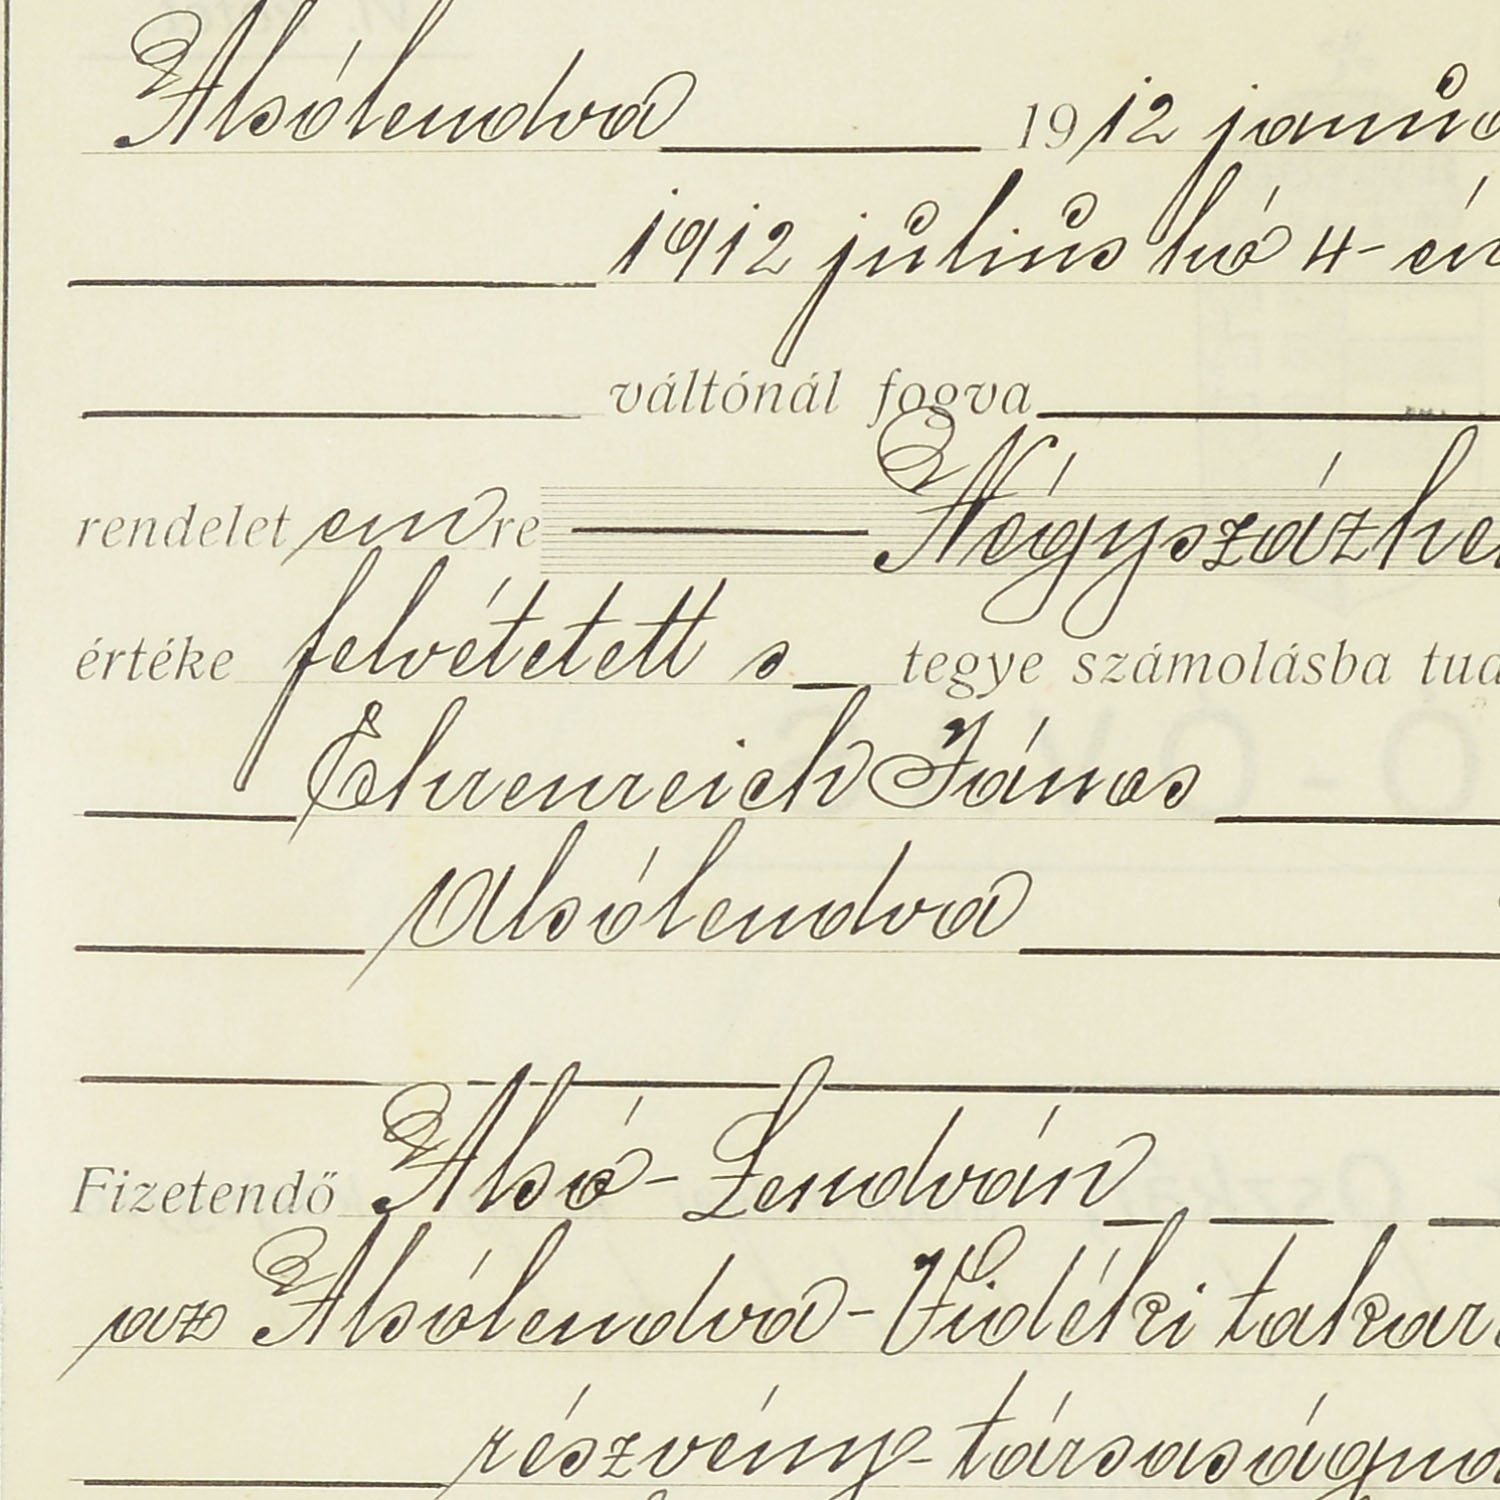 Alsólendva 1912 januá
1912 július hó 4-én
váltónál fogva
rendeletemre Négyszázhe
értéke felvétetett s tegye számolásba tud
Ehrenreich János
Alsólendva
Fizetendő Alsó-Lendván
az Alsólendva-Vidéki takar
részvény-társaságna